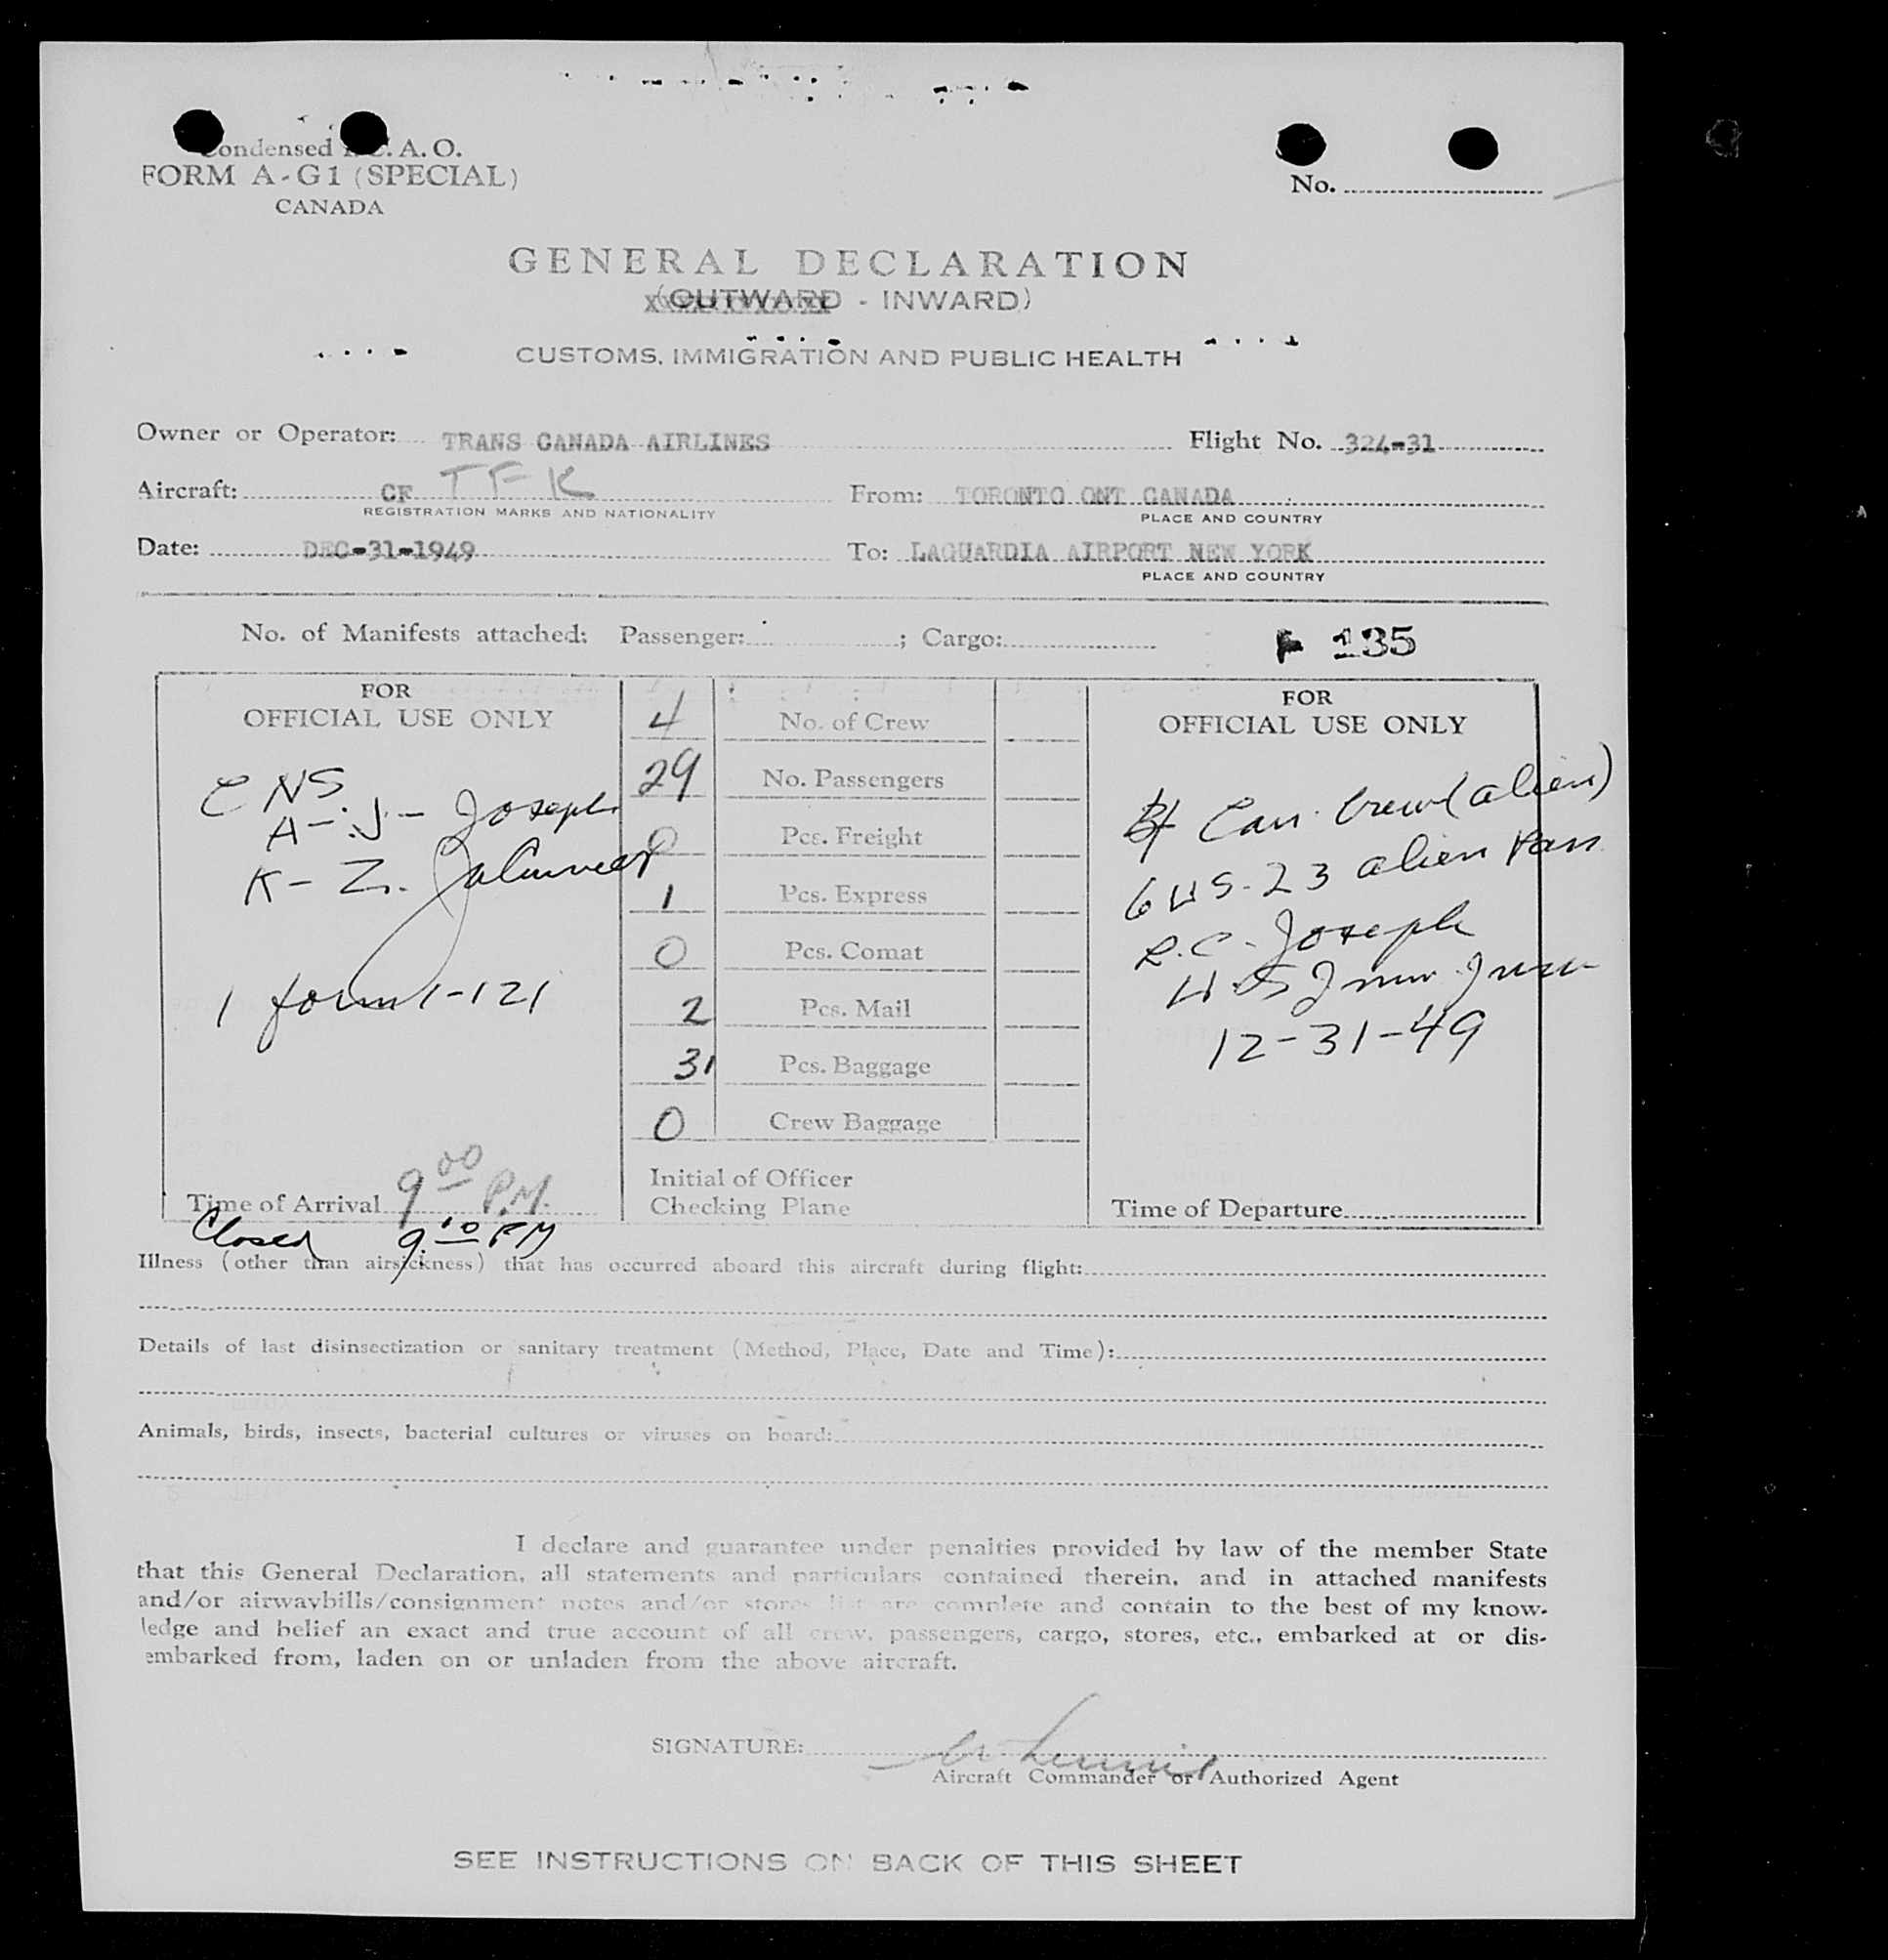 Condensed I.C.A.O.
FORM A-G1 (SPECIAL)
CANADA
No.
GENERAL DECLARATION
(OUTWARD - INWARD)
CUSTOMS, IMMIGRATION AND PUBLIC HEALTH
Owner or Operator: TRANS CANADA AIRLINES Flight No. 324-31
Aircraft: CF TFK From: TORONTO ONT CANADA
REGISTRATION MARKS AND NATIONALITY PLACE AND COUNTRY
Date: DEC-31-1949 To: LAGUARDIA AIRPORT NEW YORK
PLACE AND COUNTRY
No. of Manifests attached: Passenger: ; Cargo: 135
FOR
OFFICIAL USE ONLY
A-J- Joseph
K-Z.
1 form 1-121
Time of Arrival 9 00 P.M.
Closed 9:10 PM
4 No. of Crew
29 No. Passengers
0 Pcs. Freight
1 Pcs. Express
0 Pcs. Comat
2 Pcs. Mail
31 Pcs. Baggage
0 Crew Baggage
Initial of Officer
Checking Plane
FOR
OFFICIAL USE ONLY
Can. Crew (alien)
6 US-23 alien Pass
R.C. Joseph
US Imm. Insp
12-31-49
Time of Departure
Illness (other than airsickness) that has occurred aboard this aircraft during flight:
Details of last disinsectization or sanitary treatment (Method, Place, Date and Time):
Animals, birds, insects, bacterial cultures or viruses on board:
I declare and guarantee under penalties provided by law of the member State
that this General Declaration, all statements and particulars contained therein, and in attached manifests
and/or airwaybills/consignment notes and/or stores list are complete and contain to the best of my know-
ledge and belief an exact and true account of all crew, passengers, cargo, stores, etc., embarked at or dis-
embarked from, laden on or unladen from the above aircraft.
SIGNATURE:
Aircraft Commander or Authorized Agent
SEE INSTRUCTIONS ON BACK OF THIS SHEET